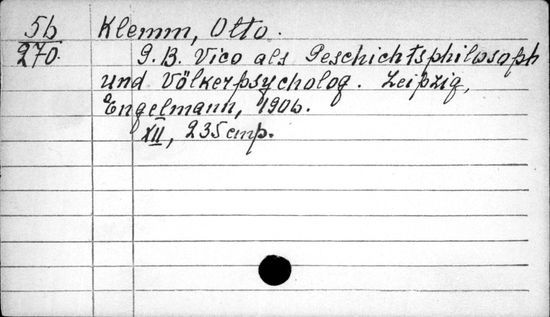 56 Klemm, Otto.
270. G. B. Vico als Geschichtsphilosoph
und Völkerpsycholog. Leipzig,
Engelmann, 1906.
XII, 235 стр.